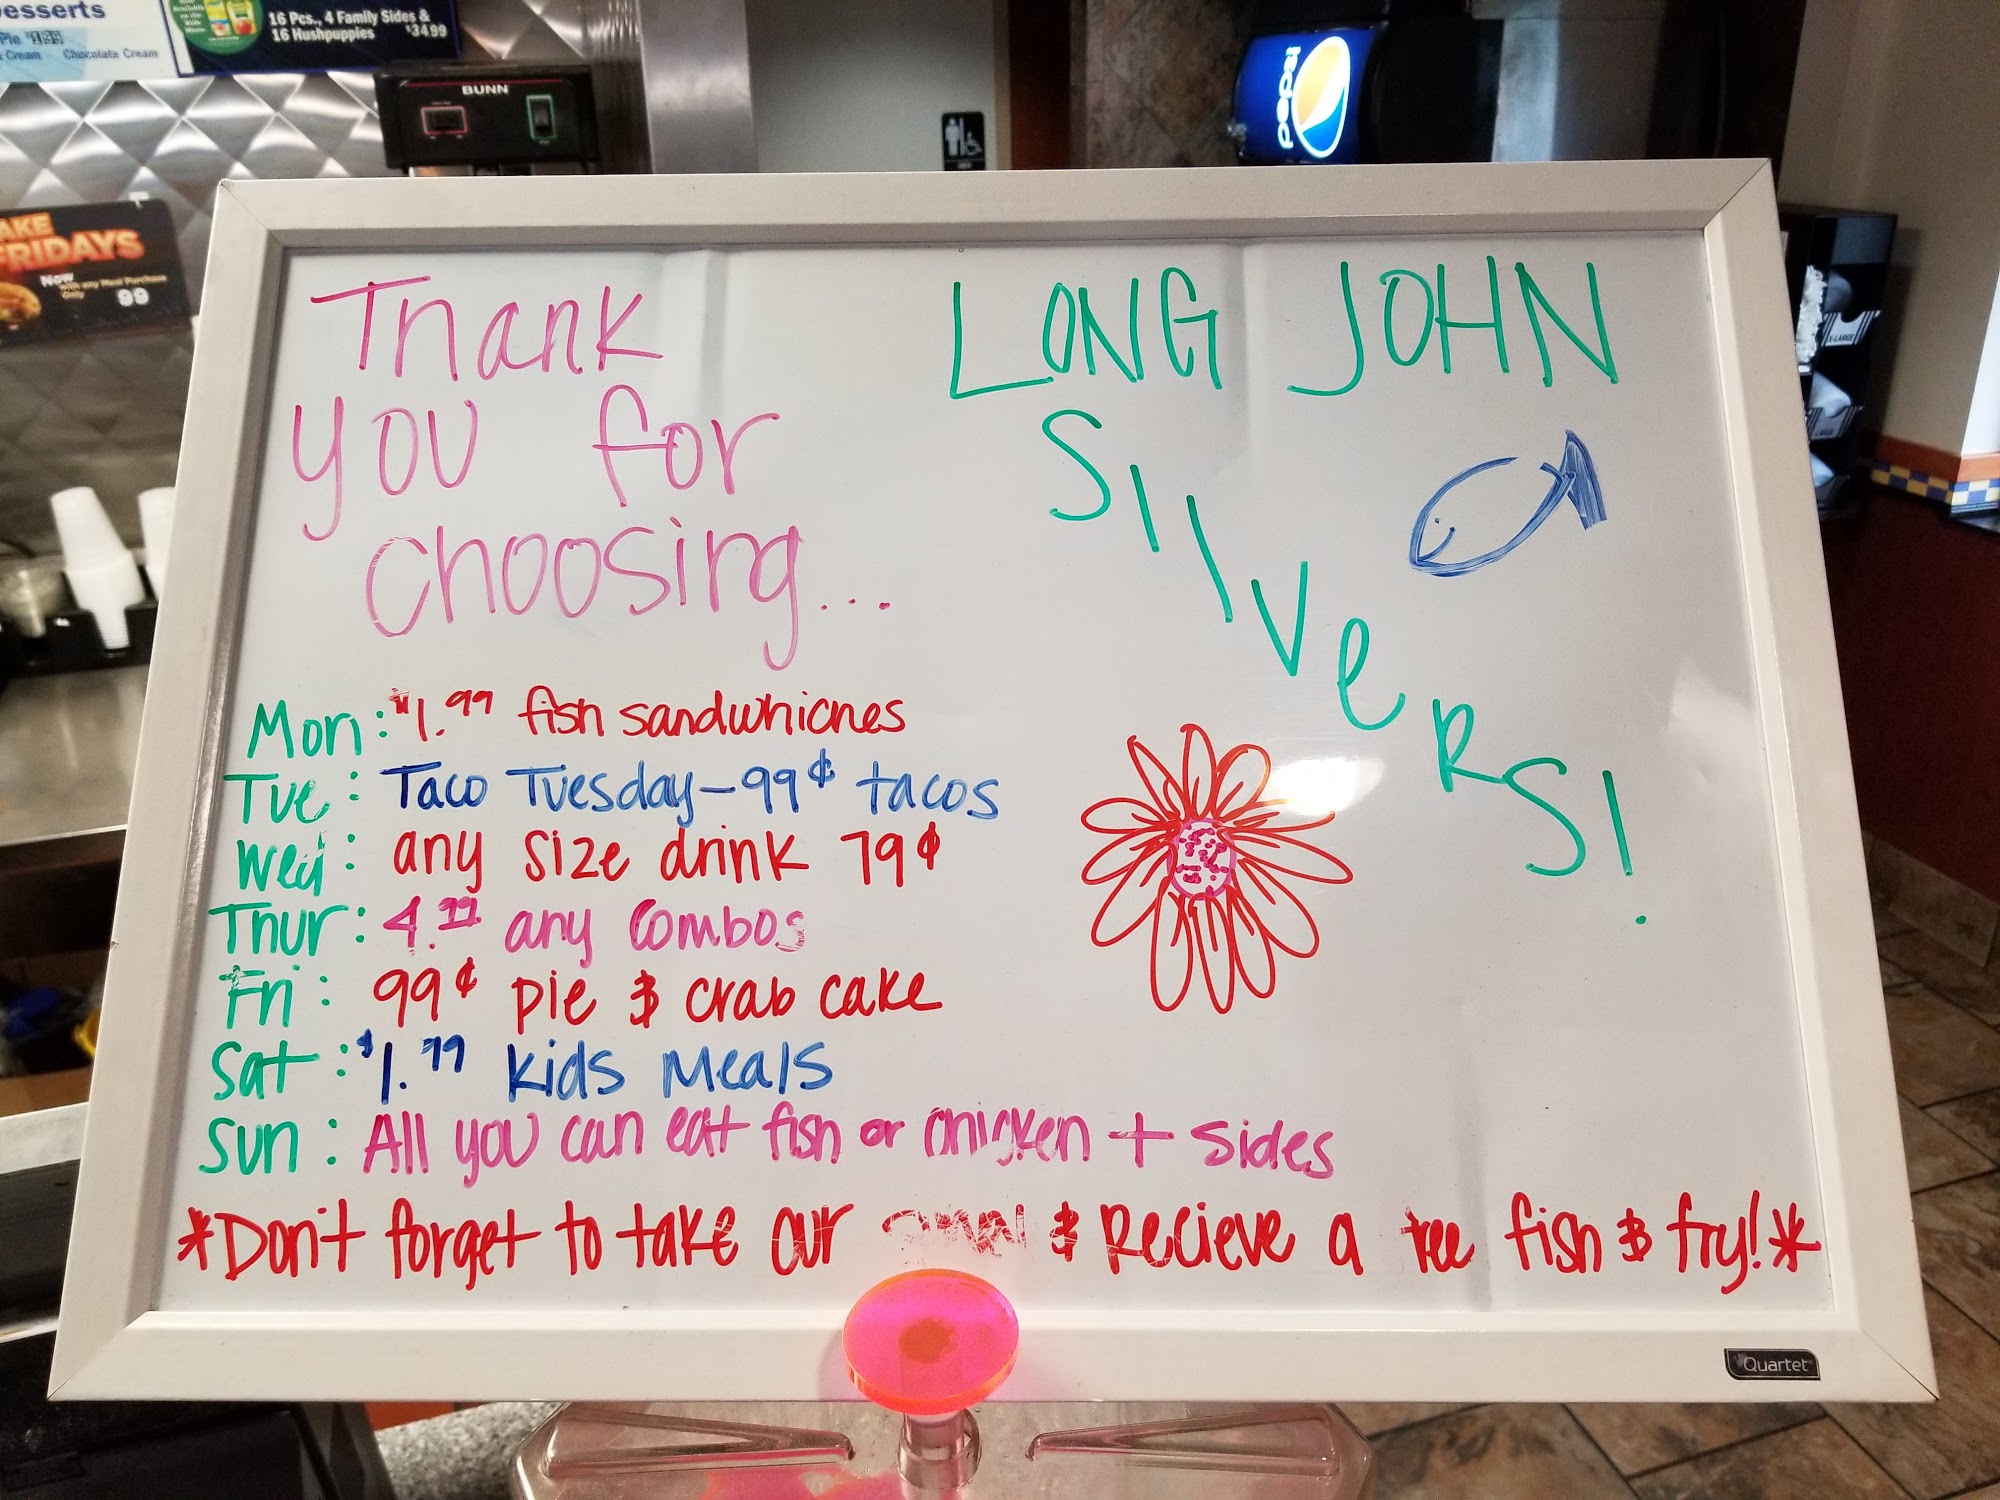 esserts
Pie $1.99
Cream Chocolate Cream
16 Pcs., 4 Family Sides &
16 Hushpuppies $34.99
BUNN
pepsi
AKE
FRIDAYS
Now
Only with any Meal Purchase
99
X-LARGE
Thank
you for
choosing...
LONG JOHN
SilveRS!
Mon: $1.99 fish sandwhicnes
Tue: Taco Tuesday - 99¢ tacos
Wed: any size drink 79¢
Thur: 4.99 any combos
Fri: 99¢ pie & crab cake
Sat: $1.99 kids meals
Sun: All you can eat fish or chicken + sides
*Don't forget to take our & Recieve a free fish & fry!*
Quartet